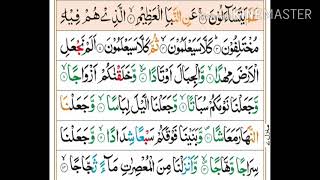 NE-MASTER
يَتَسَآءَلُوۡنَ‌ۚ‏ عَنِ النَّبَاِ الۡعَظِيۡمِۙ‏ الَّذِىۡ هُمۡ فِيۡهِ
مُخۡتَلِفُوۡنَؕ‏ كَلَّا سَيَعۡلَمُوۡنَۙ‏ ثُمَّ كَلَّا سَيَعۡلَمُوۡنَ‏ اَلَمۡ نَجۡعَلِ
الۡاَرۡضَ مِهٰدًا ۙ‏ وَّالۡجِبَالَ اَوۡتَادًا ۙ‏ وَّخَلَقۡنٰكُمۡ اَزۡوَاجًا ۙ‏
وَّجَعَلۡنَا نَوۡمَكُمۡ سُبَاتًا ۙ‏ وَّجَعَلۡنَا الَّيۡلَ لِبَاسًا ۙ‏ وَّجَعَلۡنَا
النَّهَارَ مَعَاشًا‏ وَبَنَيۡنَا فَوۡقَكُمۡ سَبۡعًا شِدَادًا ۙ‏ وَّجَعَلۡنَا
سِرَاجًا وَّهَّاجًا ۙ‏ وَّاَنۡزَلۡنَا مِنَ الۡمُعۡصِرٰتِ مَآءً ثَجَّاجًا ۙ‏